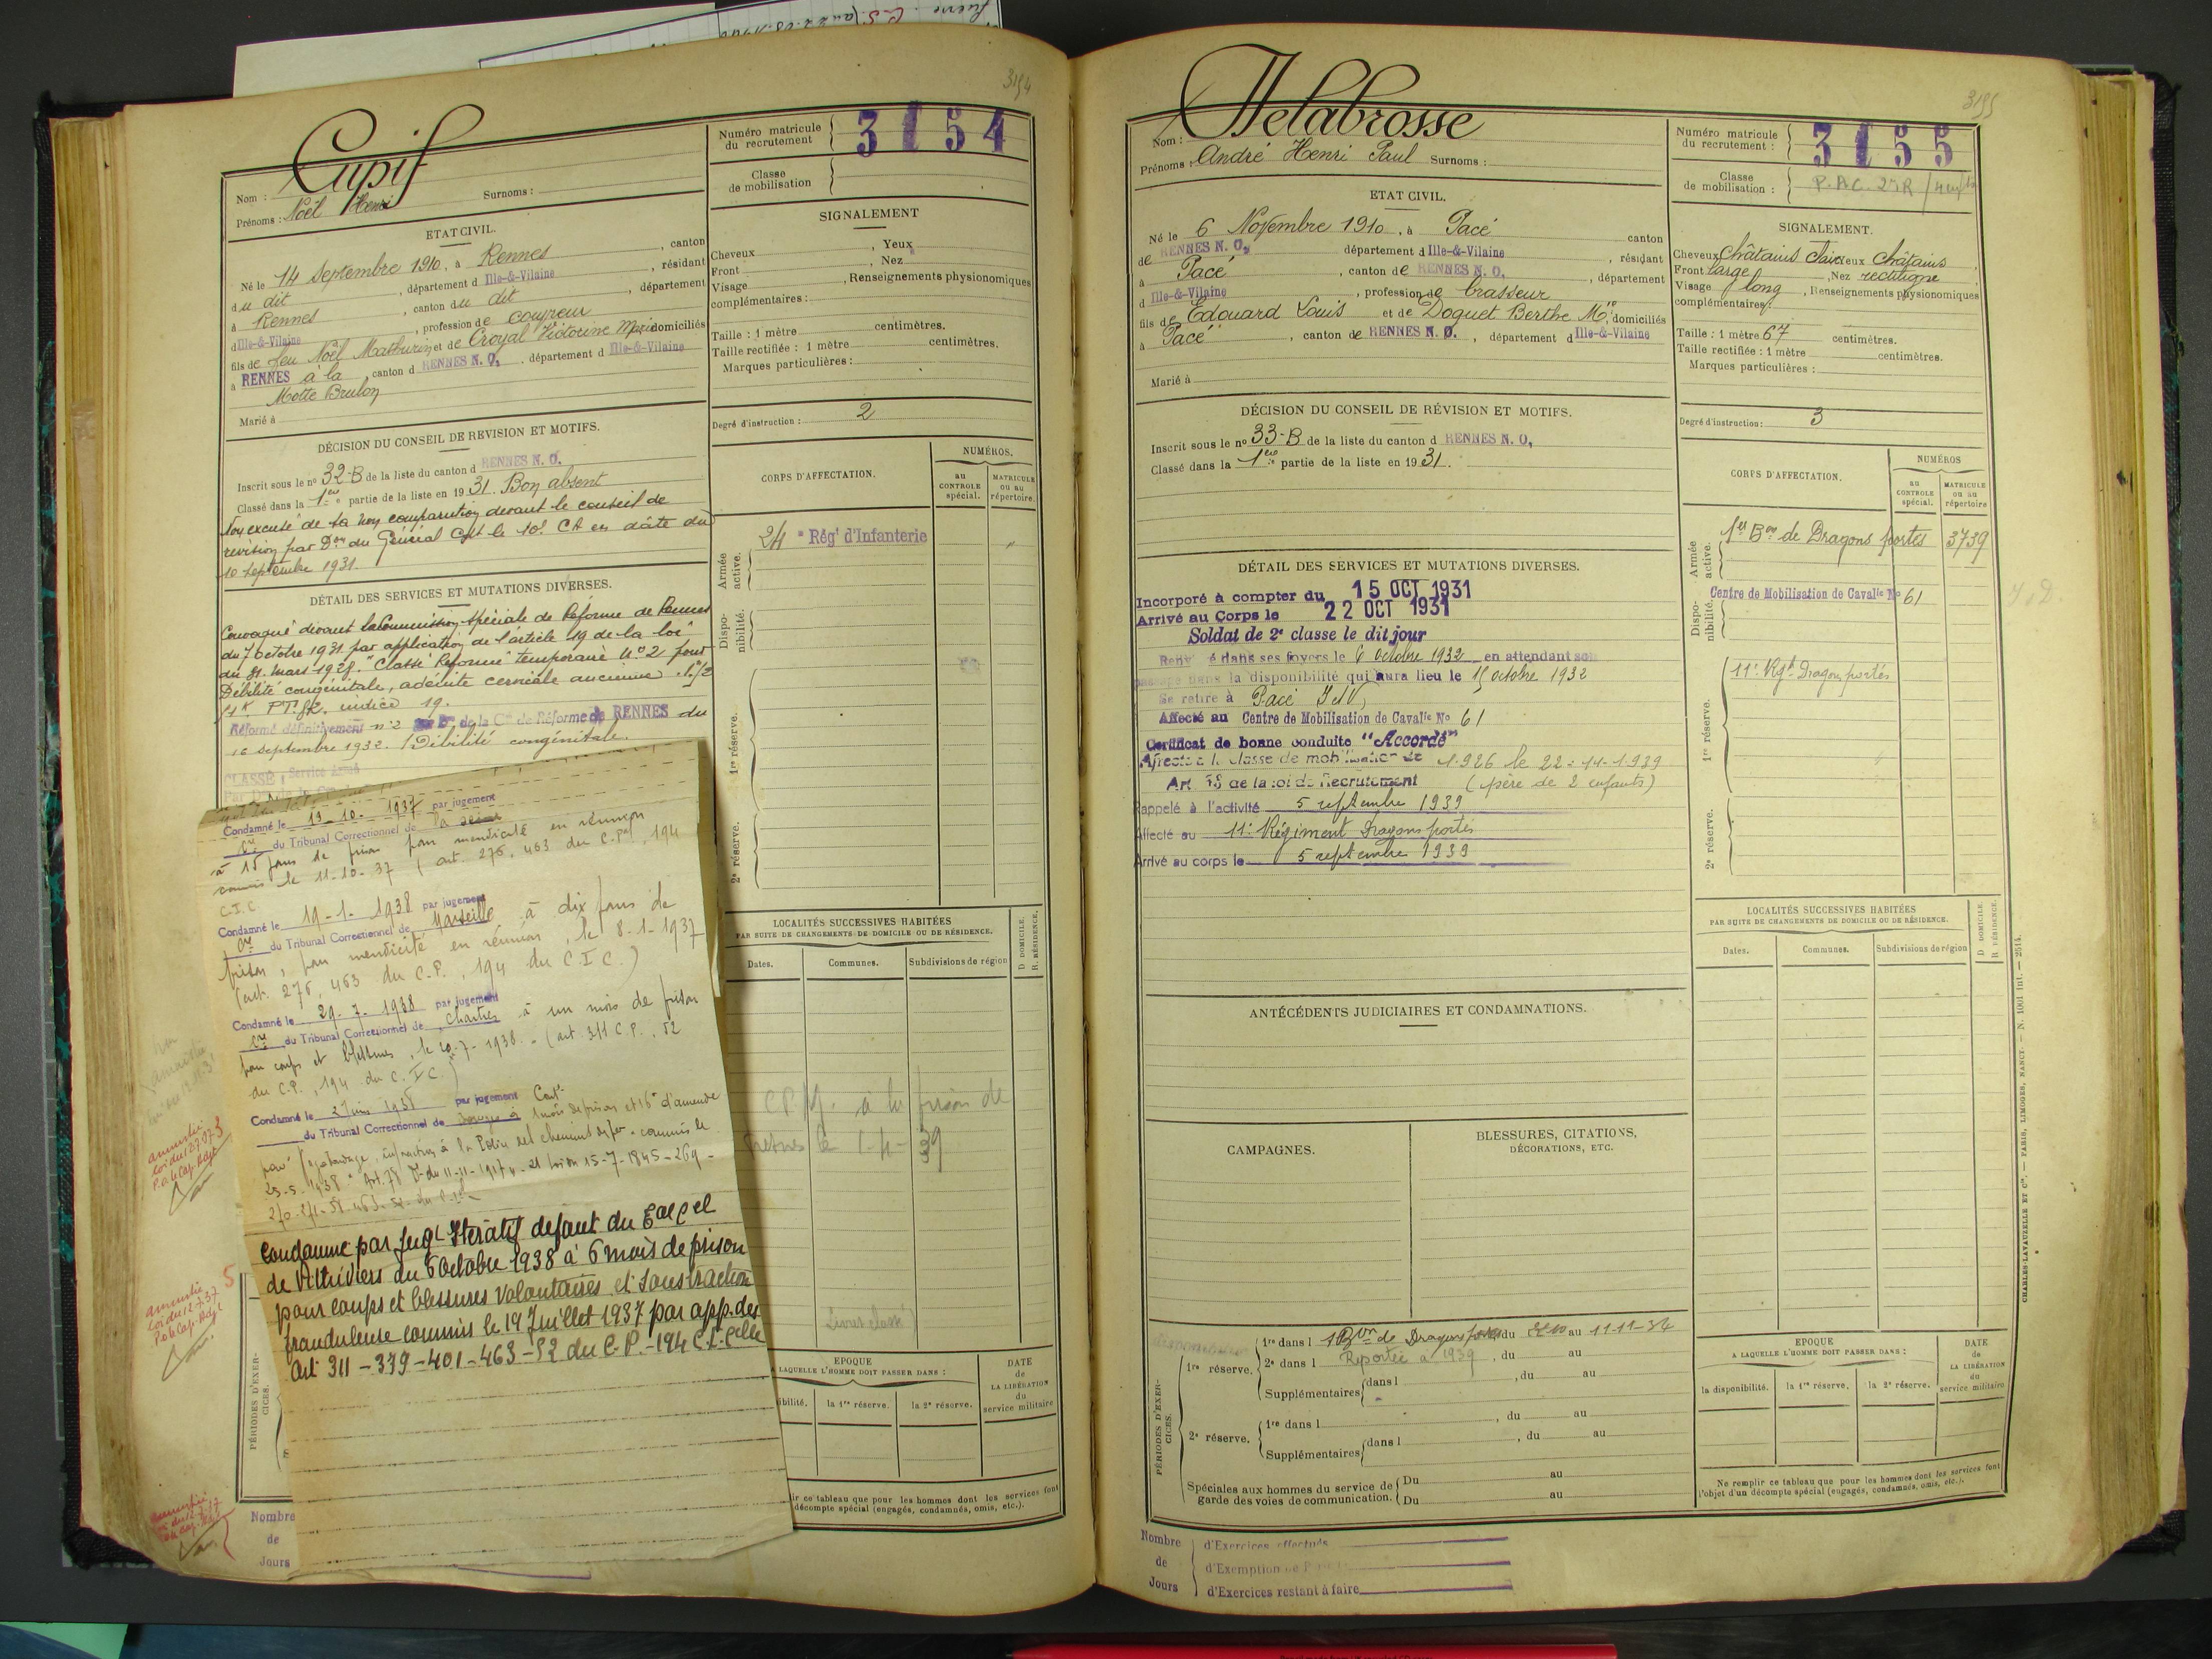 3154
Cupif
Nom :
Prénoms : Noël Henri Surnoms :
Numéro matricule du recrutement 3154
Classe de mobilisation
ETAT CIVIL.
Né le 14 Septembre 1910, à Rennes, canton
du dit, département d Ille-&-Vilaine, résidant
à Rennes, canton du dit, département
d Ille-&-Vilaine, profession de coupeur
fils de feu Noël Mathurin et de Croyal Victorine Marie domiciliés
à RENNES à la, canton d RENNES N. O., département d Ille-&-Vilaine
Motte Brulon
Marié à
SIGNALEMENT
Cheveux, Yeux
Front, Nez
Visage, Renseignements physionomiques
complémentaires :
Taille : 1 mètre centimètres.
Taille rectifiée : 1 mètre centimètres.
Marques particulières :
Degré d'instruction : 2
DÉCISION DU CONSEIL DE REVISION ET MOTIFS.
Inscrit sous le nº 32-B de la liste du canton d RENNES N. O.
Classé dans la 1ère partie de la liste en 1931. Bon absent
Non excusé de sa non comparution devant le conseil de
révision par Don du Général Cdt le 10e CA en date du
10 septembre 1931
DÉTAIL DES SERVICES ET MUTATIONS DIVERSES.
Convoqué devant la Commission Spéciale de Réforme de Rennes
du 7 octobre 1931 par application de l'article 19 de la loi
du 31 mars 1928. "Classé Réformé" temporaire Nº 2 pour
Débilité congénitale, adénite cervicale ancienne
indice 19.
Réformé définitivement nº 2 de la Con de Réforme de RENNES du
16 septembre 1932. Débilité congénitale.
CLASSÉ Service armé
Condamné le 19-10-1937 par jugement
du Tribunal Correctionnel de la Seine
à 15 jours de prison pour mendicité en réunion
commis le 11-10-37 (art. 276, 463 du C.P., 194
C.I.C.
Condamné le 19-1-1938 par jugement
du Tribunal Correctionnel de Marseille à dix jours de
prison, pour mendicité en réunion, le 8-1-1937
(art. 276, 463 du C.P., 194 du C.I.C.)
Condamné le 29-7-1938 par jugement
du Tribunal Correctionnel de Chartres à un mois de prison
pour coups et blessures, le 20-7-1938. (art. 311 C.P., 52
du C.P., 194 du C.I.C.)
Condamné le 2 Juin 1938 par jugement Cont.
du Tribunal Correctionnel de à 1 mois de prison et 16 d'amende
pour vagabondage, infraction à la Police des chemins de fer. commis le
25-5-1938 Art. 78 D. du 11-11-1917 - 21 loi du 15-7-1845-269-
270-271-58-463-52 du C.P.
Condamné par Jugt Itératif défaut du Eal Cel
de Pithiviers du 5 Octobre 1938 à 6 mois de prison
pour coups et blessures volontaires et soustraction
frauduleuse commis le 19 Juillet 1937 par app. des
Art 311-379-401-463-52 du C.P.-194 C.I.Celle
amnistié
loi du 12.7.37
P. o le Cap. Adjt
amnistié
loi du 12.7.37
P. o le Cap. Adjt
amnistié
loi du 12.7.37
P. o le Cap. Adjt
CORPS D'AFFECTATION.
NUMÉROS.
au CONTROLE spécial.
MATRICULE ou au répertoire.
Armée active.
24e Régt d'Infanterie
Dispo- nibilité.
1re réserve.
2e réserve.
LOCALITÉS SUCCESSIVES HABITÉES
PAR SUITE DE CHANGEMENTS DE DOMICILE OU DE RÉSIDENCE.
D. DOMICILE. R. RÉSIDENCE.
Dates. Communes. Subdivisions de région
à la prison de
Fresnes le 1-4-39
Livret classé
EPOQUE
A LAQUELLE L'HOMME DOIT PASSER DANS :
DATE de LA LIBÉRATION du service militaire
ibilité. la 1re réserve. la 2e réserve.
ir ce tableau que pour les hommes dont les services font
décompte spécial (engagés, condamnés, omis, etc.).
PÉRIODES D'EXER- CICES.
Nombre
de
Jours
3155
Delabrosse
Nom :
Prénoms : André Henri Paul Surnoms :
Numéro matricule du recrutement : 3155
Classe de mobilisation : P.A.C. 27R / 4 enfts
ETAT CIVIL.
Né le 6 Novembre 1910, à Pacé canton
de RENNES N. O., département d Ille-&-Vilaine, résidant
à Pacé, canton de RENNES N. O., département
d Ille-&-Vilaine, profession de brasseur
fils de Edouard Louis et de Doquet Berthe Mie, domiciliés
à Pacé, canton de RENNES N. O., département d Ille-&-Vilaine
Marié à
SIGNALEMENT.
Cheveux Châtains clairs Yeux Châtains
Front large, Nez rectiligne
Visage long, Renseignements physionomiques
complémentaires :
Taille : 1 mètre 67 centimètres.
Taille rectifiée : 1 mètre centimètres.
Marques particulières :
Degré d'instruction : 3
DÉCISION DU CONSEIL DE RÉVISION ET MOTIFS.
Inscrit sous le nº 33-B de la liste du canton d RENNES N. O.
Classé dans la 1ère partie de la liste en 1931.
DÉTAIL DES SERVICES ET MUTATIONS DIVERSES.
Incorporé à compter du 15 OCT 1931
Arrivé au Corps le 22 OCT 1931
Soldat de 2e classe le dit jour
Renvoyé dans ses foyers le 6 octobre 1932 en attendant son
passage dans la disponibilité qui aura lieu le 15 octobre 1932
Se retire à Pacé I et V,
Affecté au Centre de Mobilisation de Cavalie Nº 61
Certificat de bonne conduite "Accordé"
Affecté à la classe de mobilisation de 1926 le 22-11-1939
Art 58 de la loi de Recrutement (père de 2 enfants)
Rappelé à l'activité 5 septembre 1939
Affecté au 11e Régiment Dragons portés
Arrivé au corps le 5 septembre 1939
CORPS D'AFFECTATION.
NUMÉROS
au CONTROLE spécial.
MATRICULE ou au répertoire
Armée active.
1er Bon de Dragons portés 3739
Dispo- nibilité.
Centre de Mobilisation de Cavalie Nº 61
1re réserve.
11e Rgt Dragons portés
2e réserve.
ANTÉCÉDENTS JUDICIAIRES ET CONDAMNATIONS.
CAMPAGNES.
BLESSURES, CITATIONS,
DÉCORATIONS, ETC.
LOCALITÉS SUCCESSIVES HABITÉES
PAR SUITE DE CHANGEMENTS DE DOMICILE OU DE RÉSIDENCE.
D. DOMICILE. R. RÉSIDENCE.
Dates. Communes. Subdivisions de région
PÉRIODES D'EXER- CICES.
1re réserve.
1re dans l 1er Bon de Dragons portés du au 11-11-36
2e dans l Reportée à 1939, du au
Supplémentaires dans l, du au
2e réserve.
1re dans l, du au
Supplémentaires dans l, du au
Spéciales aux hommes du service de garde des voies de communication.
Du au
Du au
EPOQUE
A LAQUELLE L'HOMME DOIT PASSER DANS :
DATE de LA LIBÉRATION du service militaire
la disponibilité. la 1re réserve. la 2e réserve.
Ne remplir ce tableau que pour les hommes dont les services font
l'objet d'un décompte spécial (engagés, condamnés, omis, etc.).
Nombre de Jours
d'Exercices effectués
d'Exemption de
d'Exercices restant à faire
CHARLES-LAVAUZELLE ET Cie. — PARIS, LIMOGES, NANCY. — N. 1001 int. — 2514.